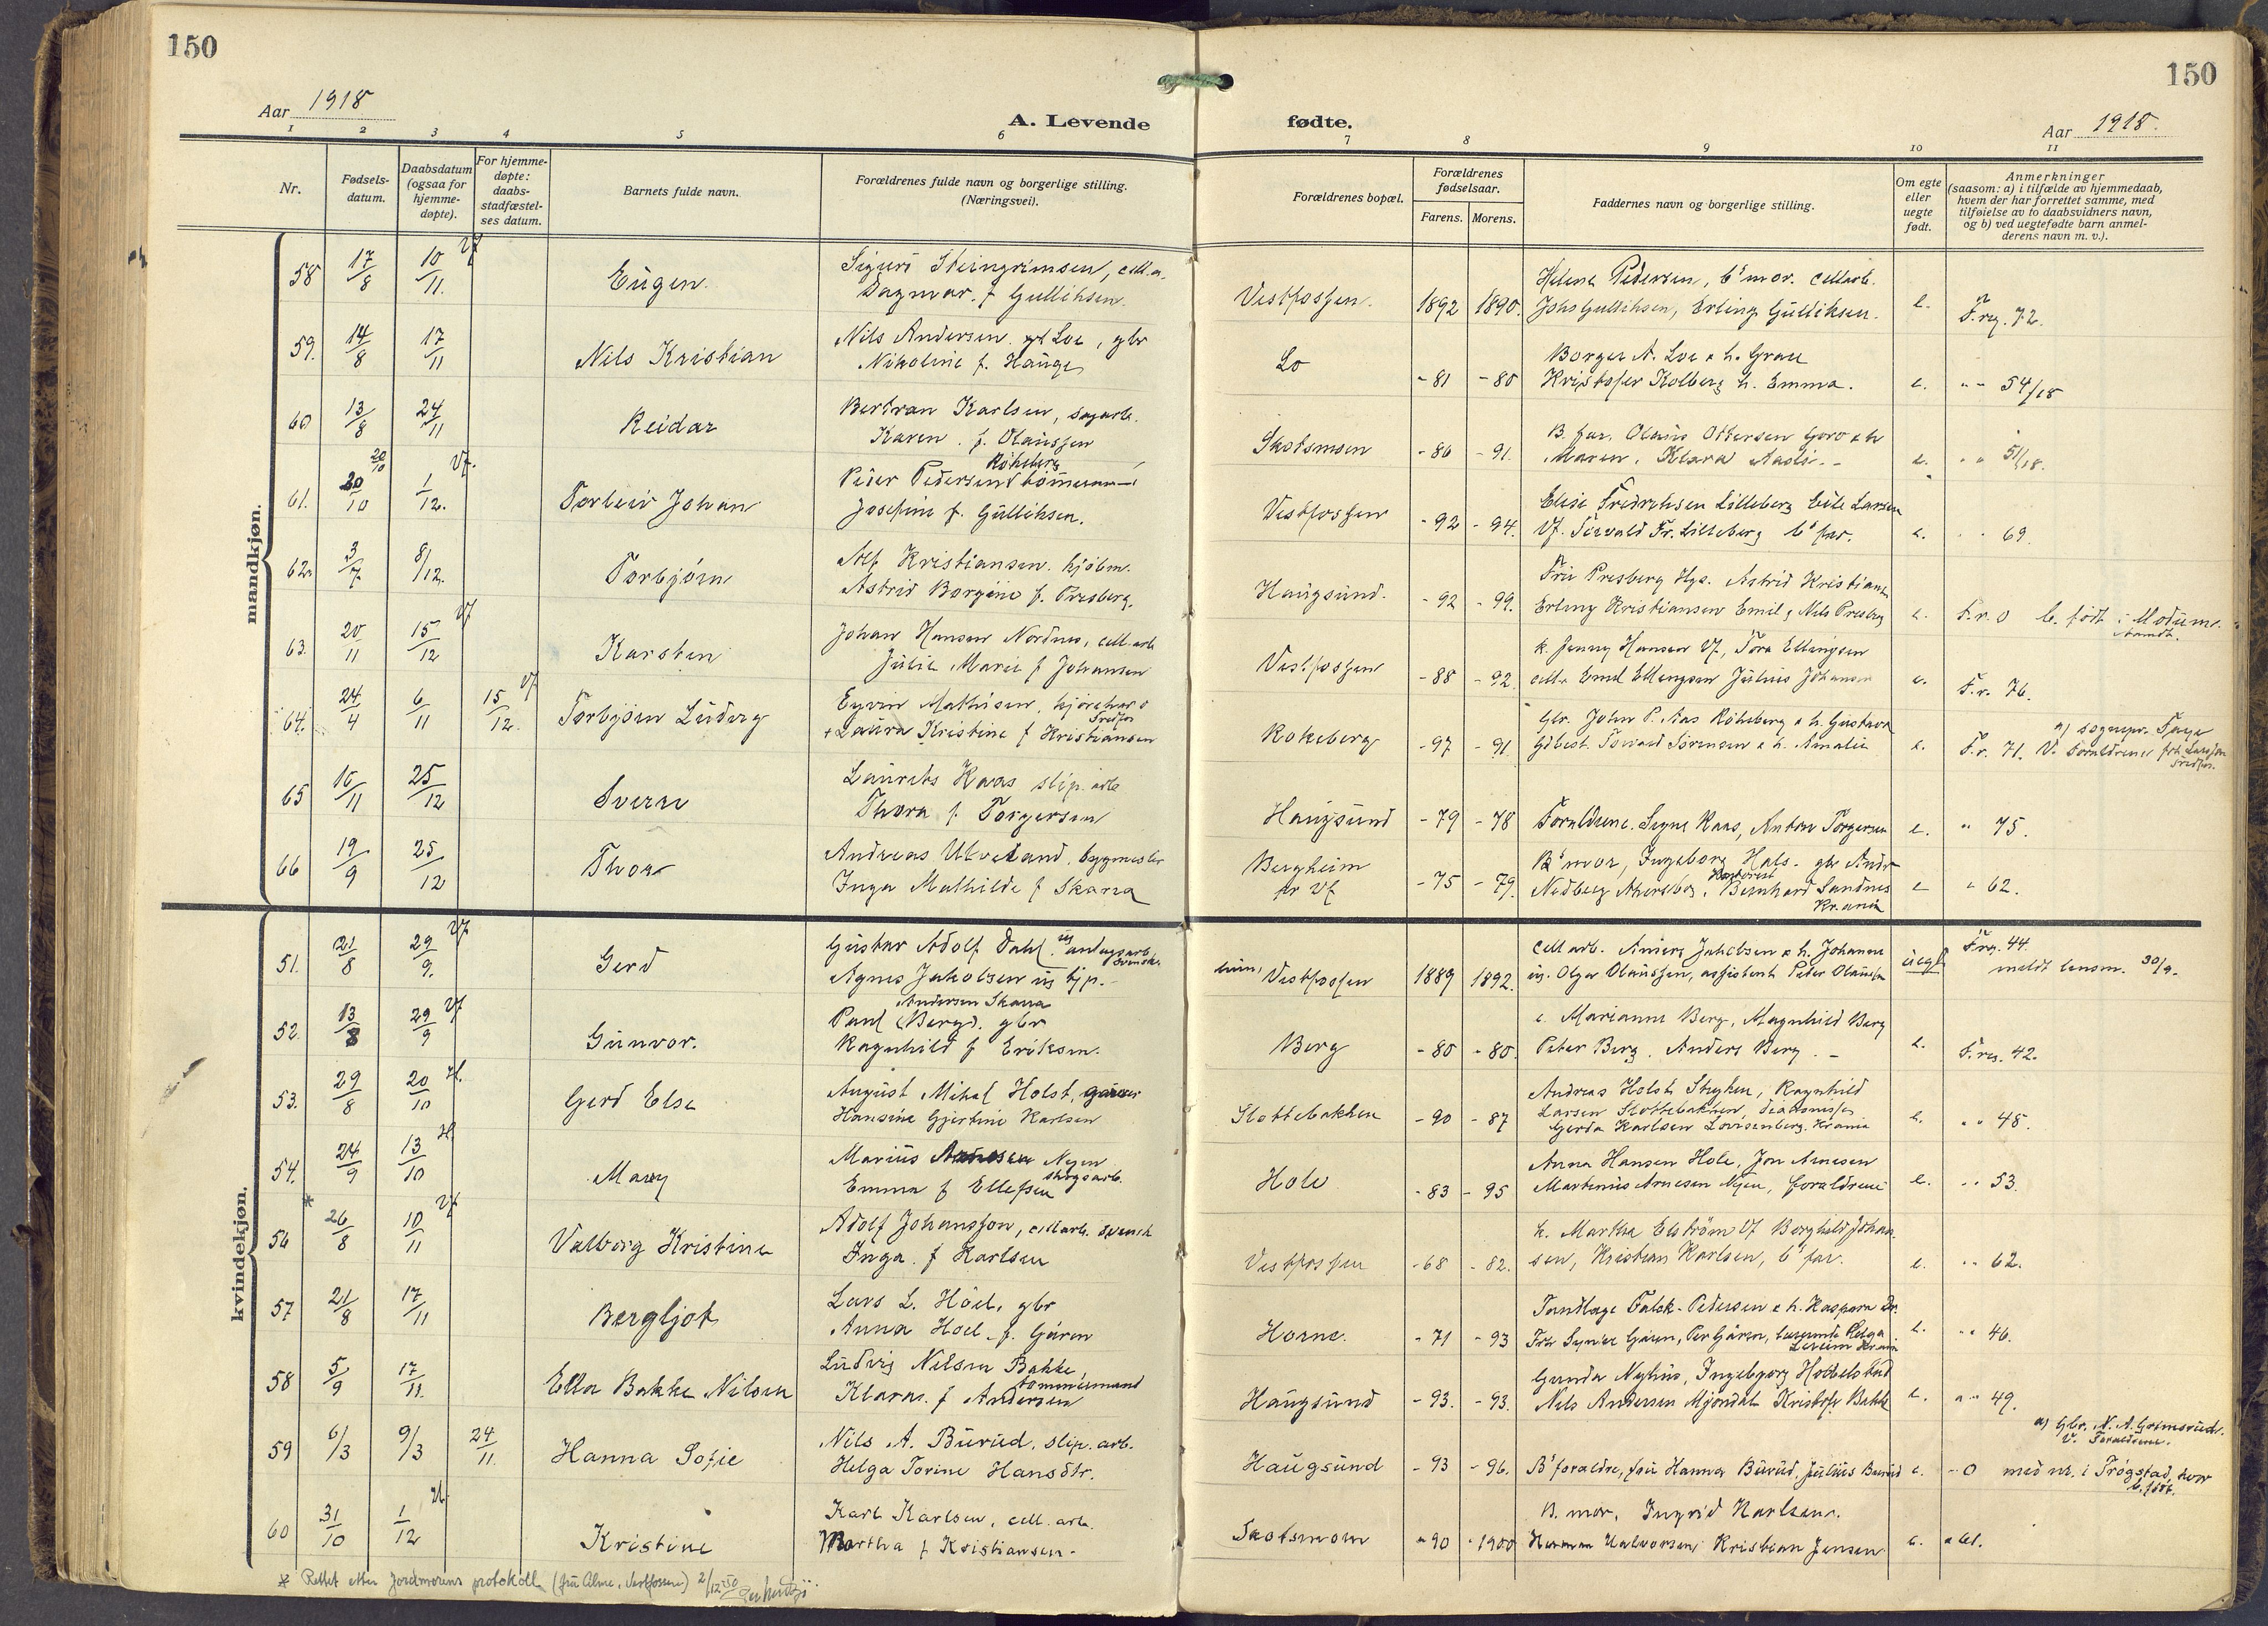 150
150
Aar 1918
A. Levende
fødte.
Aar 1918.
1 2 3 4 5 6
7 8 9 10 11
Nr.
Fødsels-datum.
Daabsdatum (ogsaa for hjemme-døpte).
For hjemme-døpte: daabs-stadfæstel-ses datum.
Barnets fulde navn.
Forældrenes fulde navn og borgerlige stilling. (Næringsvei).
Forældrenes bopæl.
Forældrenes fødselsaar.
Farens. Morens.
Faddernes navn og borgerlige stilling.
Om egte eller uegte født.
Anmerkninger (saasom: a) i tilfælde av hjemmedaab, hvem der har forrettet samme, med tilføielse av to daabsvidners navn, og b) ved uegtefødte barn anmel-derens navn m. v.).
mandkjøn.
58 17/8 10/11. Vf Eugen. Sigurd Steingrimsen, cell.a.
Dagmar. f Gulliksen. Vestfossen. 1892 1890. Helene Pedersen, b's mor. cellarb.
Johs Gulliksen, Erling Gulliksen. e. F.reg. 72.
59. 14/8 17/11 Nils Kristian Nils Andersen Loe, gbr
Nikoline f. Hauge Lo -81 -80 Borger A. Loe & h. Grace
Kristofer Kolberg h. Emma. e. " - 54/18
60 13/8 24/11 Reidar Bertran Karlsen, sagarb.
Karen. f. Olaussen Skotsmoen -86 -91. B. far. Olaus Ottersen & h
Maren, Klara e. " " 51/18.
61. 20/10 20/10 1/12. Vf. Torleiv Johan Peder Pedersen Røkeberg tømmerm.
Josefine f. Gulliksen. Vestfossen -92 -94. Elise Fredriksen Lilleberg Larsen
Vf. Torvald Fr. Lilleberg b's far. e. " " 69.
62. 3/7 8/12. Torbjørn Alf Kristiansen. kjøbm.
Astrid Borgine f. Presberg. Haugsund. -92 -99. Fru Presberg Hgs. Astrid Kristiansen
Erling Kristiansen Emil & Nils Presberg e. F.r. 0 b. født i Modum.
63. 20/11 15/12 Vf Karsten Johan Hansen Nordnes, cell.arb
Julie Marie f Johansen Vestfossen -88 -92. k. Jenny Hansen Vf, Tora Ellingsen
cell.a Emil Ellingsen Julius Johansen e. F.r. 76.
64. 24/4 6/11 15/12. Vf Torbjørn Ludvig Eyvin Mathisen,
Laura Kristine f Kristiansen Rokeberg -97 -91. Gbr. John P. Aas Rökeberg & h. Gustava
Torvald Sørensen & h. Amalie e. F.r. 71. a) sognepr. Faye
V. Forældrene
65 16/11 25/12 Sverre Laurits Kaas slip. arb
Thora f. Torgersen Haugsund -79 -78 Forældrene. Signe Kaas, Anton Torgersen e. " 75.
66 19/9 25/12 Thor Andreas Utveland, bygmester
Inga Mathilde f Skarra Bergheim
pr Vf -75 -79. B's mor, Ingeborg Hals. gbr Andr
Nedberg Bernhard Sandnes
Kr.ania e " 62.
kvindekjøn.
51. 21/8 29/9. Vf Gerd Gustav Adolf Dahl ug anlægsarb. svensk
Agnes Jakobsen ug hjp. Vestfossen 1889 1892. cell arb. Anders Jakobsen & h. Johanne
ug. Olga Olaussen, assistent Peder Olaussen uegt F.reg. 44.
meldt lensm. 30/9.
52. 13/8 29/9 Vf Gunvor. Andersen Skarra
Paul (Berg). gbr
Ragnhild f Eriksen. Berg -80 -80. Marianne Berg, Magnhild Berg
Peter Berg. Anders Berg. e. F.reg. 42.
53. 29/8 20/10 H. Gerd Else August Mikal Holst,
Hansine Gjertine Karlsen Slottebakken -90 -87 Andreas Holst Stryken, Ragnhild
Larsen Slottebakken, diakonisse
Gerda Karlsen Lovisenberg. Krania e. " " 45.
54. 24/9 13/10 H Mary Marius Nyen
skogsarb.
Emma f Ellefsen Hole -83 -95 Anna Hansen Hole, Jon Arnesen
Martinius Arnesen Nyen, forældrene e. " " 53.
*
56 26/8 10/11 Vf Valborg Kristine Adolf Johansson, cellarb. svensk
Inga. f Karlsen Vestfossen -68 -82. k. Martha Elström Vf Borghild Johan
sen, Kristian Karlsen, b's far. e. " " 62.
57 21/8 17/11 Bergljot Lars L. Höeli gbr
Anna Hoel f. Gåren Horne. -71 -93 Tandlæge Falck-Pedersen & h. Kaspara Dr.
Gåren, Per Gåren, Helga e. " " 46.
58 5/9 17/11. Ella Bakke Nilsen Ludvig Nilsen Bakke,
tømmermand
Klara. f Andersen Haugsund -93. -93. Gunda Nyhus, Ingeborg Hobbelstad
Nils Andersen Mjøndal. Kristofer Bakke e. " " 49.
59 6/3 9/3 24/11. Hanna Sofie Nils A. Burud, slip. arb.
Helga Torine Hansdtr. Haugsund -93 -96. B's forældre, fru Hanna Burud, Julius Burud e. -0 a) Gbr. N. A. Grimsrud.
V. Forældrene.
med nr. i Trøgstad, hvor
b. født.
60 31/10 1/12 Kristine Karl Karlsen, cell. arb.
Martha f Kristiansen. Skotsmoen -90 -1900 B. mor, Ingrid Karlsen.
Herman Halvorsen, Kristian Jensen e. " 61.
* Rettet etter Jordmorens protokoll (fru Alme, Vestfossen) 2/12 50